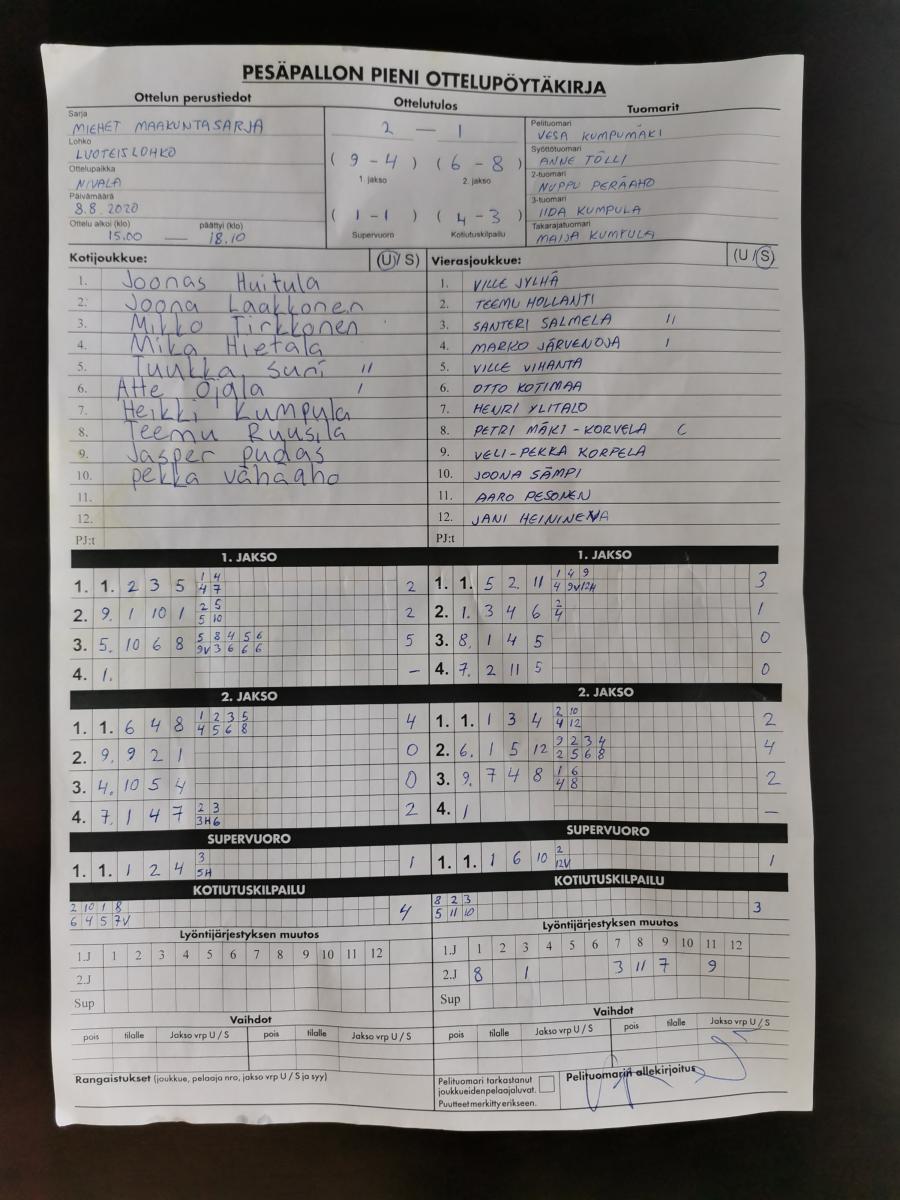 PESÄPALLON PIENI OTTELUPÖYTÄKIRJA
Ottelun perustiedot
Sarja
MIEHET MAAKUNTASARJA
Lohko
LUOTEISLOHKO
Ottelupaikka
NIVALA
Päivämäärä
8.8.2020
Ottelu alkoi (klo) päättyi (klo)
15.00 — 18.10
Ottelutulos
2 — 1
( 9 - 4 ) ( 6 - 8 )
1. jakso 2. jakso
( 1 - 1 ) ( 4 - 3 )
Supervuoro Kotiutuskilpailu
Tuomarit
Pelituomari
VESA KUMPUMÄKI
Syöttötuomari
ANNE TÖLLI
2-tuomari
NUPPU PERÄAHO
3-tuomari
IIDA KUMPULA
Takarajatuomari
MAIJA KUMPULA
Kotijoukkue: (U / S)
1. Joonas Huitula
2. Joona Laakkonen
3. Mikko Tirkkonen
4. Mika Hietala
5. Tuukka Suni II
6. Atte Ojala I
7. Heikki Kumpula
8. Teemu Ruusila
9. Jasper pudas
10. pekka vähäaho
11.
12.
PJ:t
Vierasjoukkue: (U / S)
1. VILLE JYLHÄ
2. TEEMU HOLLANTI
3. SANTERI SALMELA II
4. MARKO JÄRVENOJA I
5. VILLE VIHANTA
6. OTTO KOTIMAA
7. HENRI YLITALO
8. PETRI MÄKI-KORVELA C
9. VELI-PEKKA KORPELA
10. JOONA SÄMPI
11. AARO PESONEN
12. JANI HEININEVA
PJ:t
1. JAKSO
1. 1. 2 3 5 1 4 2
4 7
2. 9. 1 10 1 2 5 2
5 10
3. 5. 10 6 8 5 8 4 5 6 5
9V 3 6 6 6
4. 1. –
1. JAKSO
1. 1. 5 2 11 1 4 9 3
4 9V 12H
2. 1. 3 4 6 2 1
4
3. 8. 1 4 5 0
4. 7. 2 11 5 0
2. JAKSO
1. 1. 6 4 8 1 2 3 5 4
4 5 6 8
2. 9. 9 2 1 0
3. 4. 10 5 4 0
4. 7. 1 4 7 2 3 2
3H 6
2. JAKSO
1. 1. 1 3 4 2 10 2
4 12
2. 6. 1 5 12 9 2 3 4 4
2 5 6 8
3. 9. 7 4 8 1 6 2
4 8
4. 1 –
SUPERVUORO
1. 1. 1 2 4 3 1
5H
SUPERVUORO
1. 1. 1 6 10 2 1
12V
KOTIUTUSKILPAILU
2 10 1 8 4
6 4 5 7V
KOTIUTUSKILPAILU
8 2 3 3
5 11 10
Lyöntijärjestyksen muutos
1.J 1 2 3 4 5 6 7 8 9 10 11 12
2.J
Sup
Lyöntijärjestyksen muutos
1.J 1 2 3 4 5 6 7 8 9 10 11 12
2.J 8 1 3 11 7 9
Sup
Vaihdot
pois tilalle Jakso vrp U / S pois tilalle Jakso vrp U / S
Vaihdot
pois tilalle Jakso vrp U / S pois tilalle Jakso vrp U / S
Rangaistukset (joukkue, pelaaja nro, jakso vrp U / S ja syy)
Pelituomari tarkastanut
joukkueidenpelaajaluvat.
Puutteet merkitty erikseen.
Pelituomarin allekirjoitus